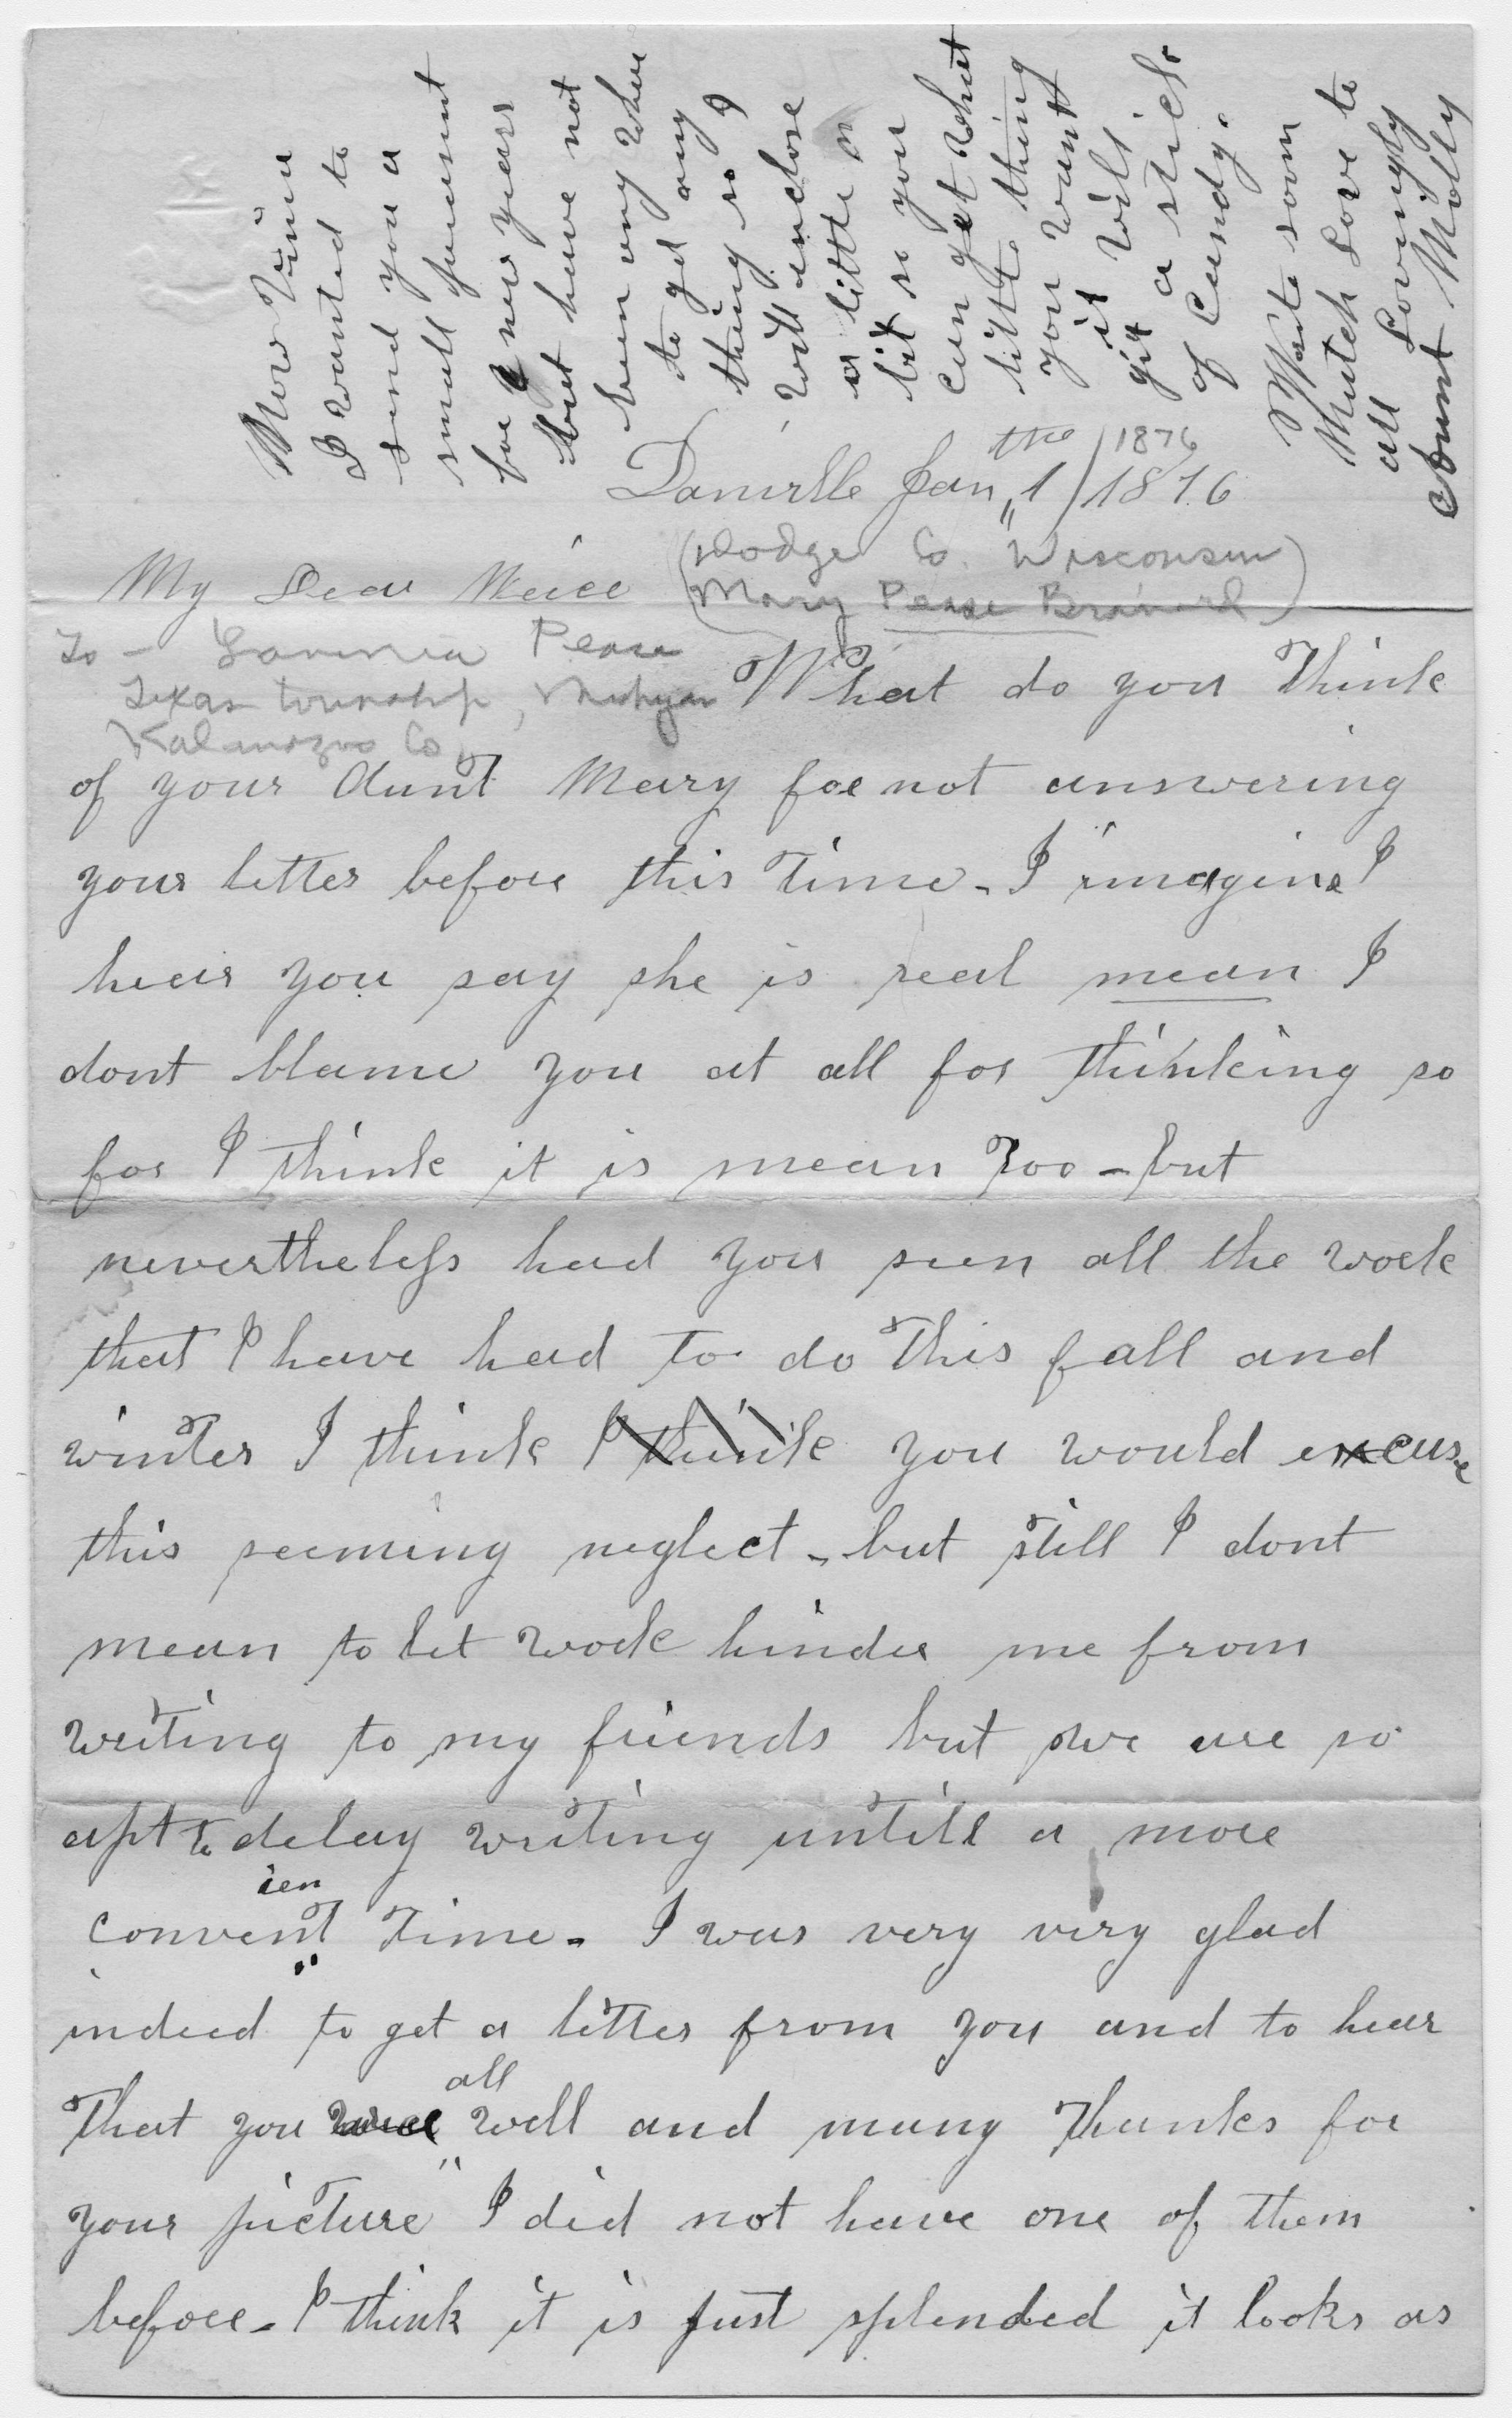 Now Vinie
I wanted to
send you a
small present
for new years
but have not
been any where
to get any
thing so I
will enclose
a little
bit so you
can get what
little thing
you want
it will
git a stick
of candy.
Write soon
Mutch Love to
all Lovingly
Aunt Molly
Danville Jan 1the / 1876
1876
(Dodge Co. Wisconsin
My Dear Neice
Mary Pease Brainard)
To - Lavinia Pease
Texas township, Michigan
Kalamazoo Co
What do you Think
of your Aunt Mary for not answering
your letter before this Time - I imagine I
hear you say she is real mean I
dont blame you at all for thinking so
for I think it is mean Too - but
nevertheless had you seen all the work
that I have had to do This fall and
winter I think I think you would excuse
this seeming neglect - but still I dont
mean to let work hinder me from
writing to my friends but we are so
apt to delay writing untill a more
ien
convent Time - I was very very glad
indeed to get a letter from you and to hear
all
That you well and many Thanks for
your picture" I did not have one of them
before - I think it is just splended it looks as